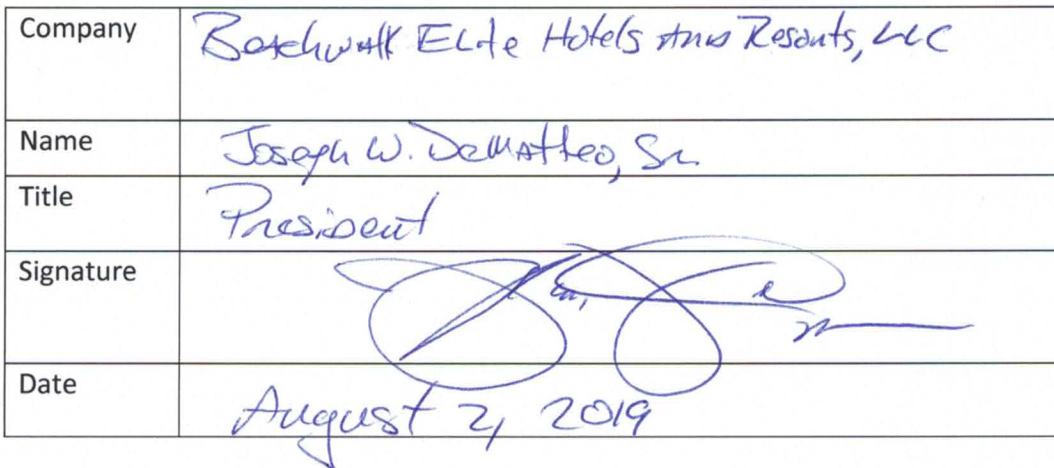 Company Beachwalk Elite Hotels and Resorts, LLC
Name Joseph W. DeMatteo, Sr.
Title President
Signature
Date August 2, 2019